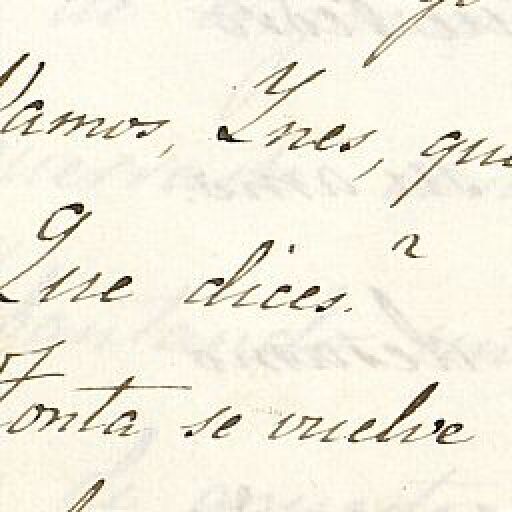 Vamos, Ynes, que
Que dices?
Tonta se vuelve